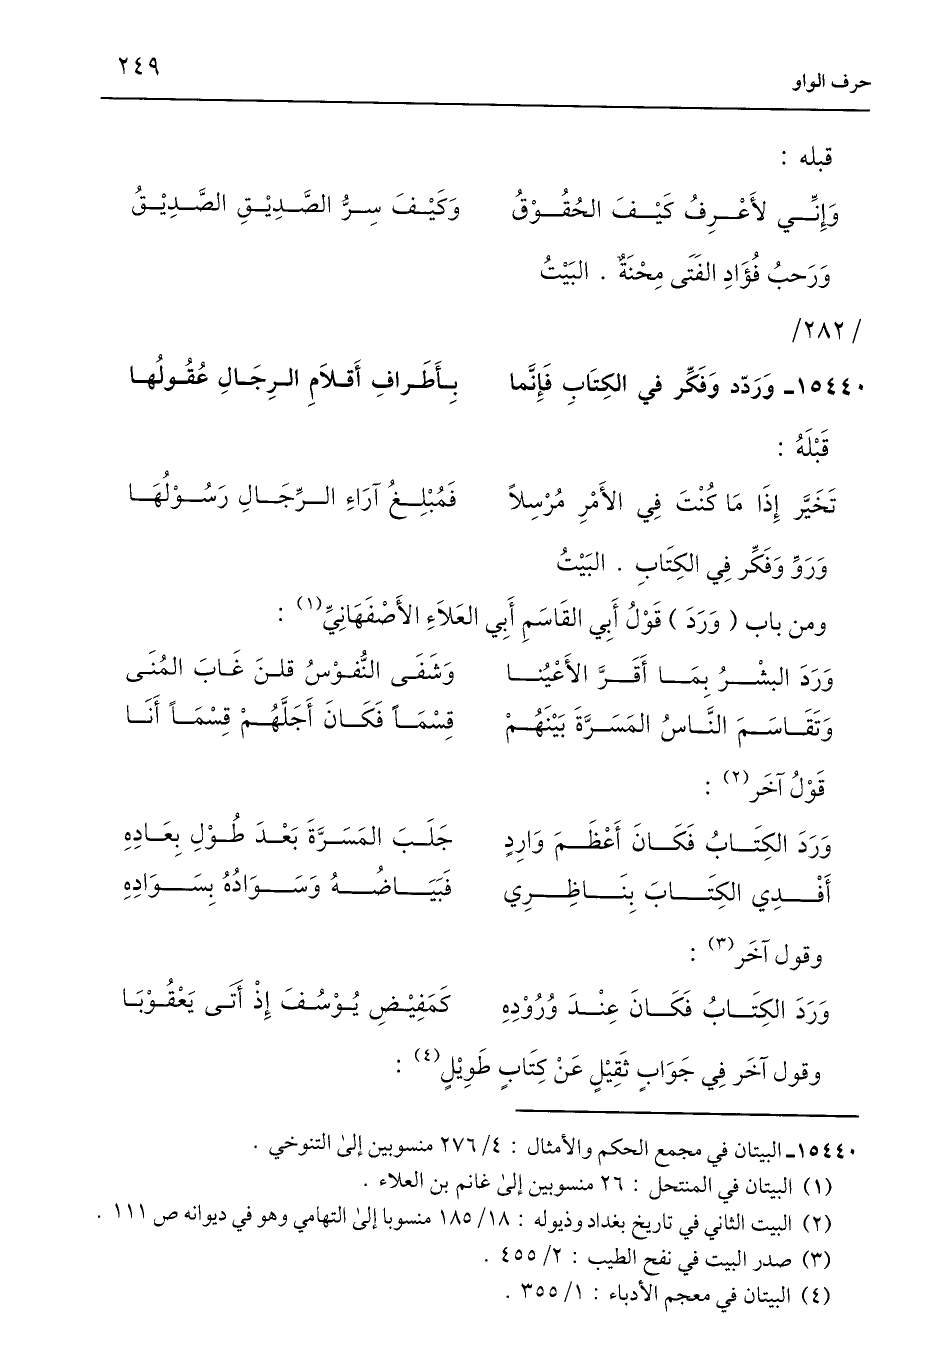 حرف الواو ٢٤٩
قبله :
وَإِنِّي لأَعْرِفُ كَيْفَ الحُقُوْقُ وَكَيْفَ سِرُّ الصَّدِيْقِ الصَّدِيْقُ
وَرَحبُ فُؤَادِ الفَتَى مِحْنَةٌ . البَيْتُ
/٢٨٢/
١٥٤٤٠ـ وَرَدّد وَفَكِّر في الكِتَابِ فَإِنَّما بِأَطَرافِ أَقلاَمِ الرِجَالِ عُقُولُها
قَبْلَهُ :
تَخَيَّر إِذَا مَا كُنْتَ فِي الأَمْرِ مُرْسِلاً فَمُبْلِغُ آرَاءِ الرِّجَالِ رَسُوْلُهَا
وَرَوِّ وَفَكِّر فِي الكِتَابِ . البَيْتُ
ومن باب ( وَرَدَ ) قَوْلُ أَبِي القَاسَمِ أَبِي العَلاَءِ الأَصْفَهَانِيِّ(١) :
وَرَدَ البشْرُ بِمَا أَقَرَّ الأَعْيُنا وَشَفَى النُّفوْسُ قلنَ غَابَ المُنَى
وَتَقَاسَمَ النَّاسُ المَسَرَّةَ بَيْنَهُمْ قِسْمَاً فَكَانَ أَجَلَّهُمْ قِسْمَاً أَنَا
قَوْلُ آخَر(٢) :
وَرَدَ الكِتَابُ فَكَانَ أَعْظَمَ وَارِدٍ جَلَبَ المَسَرَّةَ بَعْدَ طُوْلِ بِعَادِهِ
أَفْدِي الكِتَابَ بِنَاظِرِي فَبَيَاضُهُ وَسَوَادُهُ بِسَوَادِهِ
وقول آخَر(٣) :
وَرَدَ الكِتَابُ فَكَانَ عِنْدَ وُرُوْدِهِ كَمَفِيْضِ يُوْسُفَ إِذْ أَتَى يَعْقُوْبَا
وقول آخَر فِي جَوَابٍ ثَقِيْلٍ عَنْ كِتَابٍ طَوِيْلٍ(٤) :
١٥٤٤٠ـ البيتان في مجمع الحكم والأمثال : ٤/ ٢٧٦ منسوبين إلى التنوخي .
(١) البيتان في المنتحل : ٢٦ منسوبين إلى غانم بن العلاء .
(٢) البيت الثاني في تاريخ بغداد وذيوله : ١٨/ ١٨٥ منسوبا إلى التهامي وهو في ديوانه ص ١١١ .
(٣) صدر البيت في نفح الطيب : ٢/ ٤٥٥ .
(٤) البيتان في معجم الأدباء : ١/ ٣٥٥ .